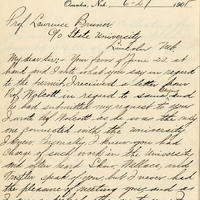 Omaha, Neb, 6-24 1905
Prof. Lawrence Bruner
℅ State University
Lincoln Neb.
My dear Sir:- Your favor of June 22 at
hand, and I note what you say in regard
to the permit, I received a letter from
Prof. Wolcott in regard to same and
he had submitted my request to you
I wrote Prof Wolcott, as he was the only
one connected with the University
I knew. Specially I knew you had
charge of such work in the University
and often heard Shaw Wallace and
speak of you, but I never had
the pleasure of meeting you, and so